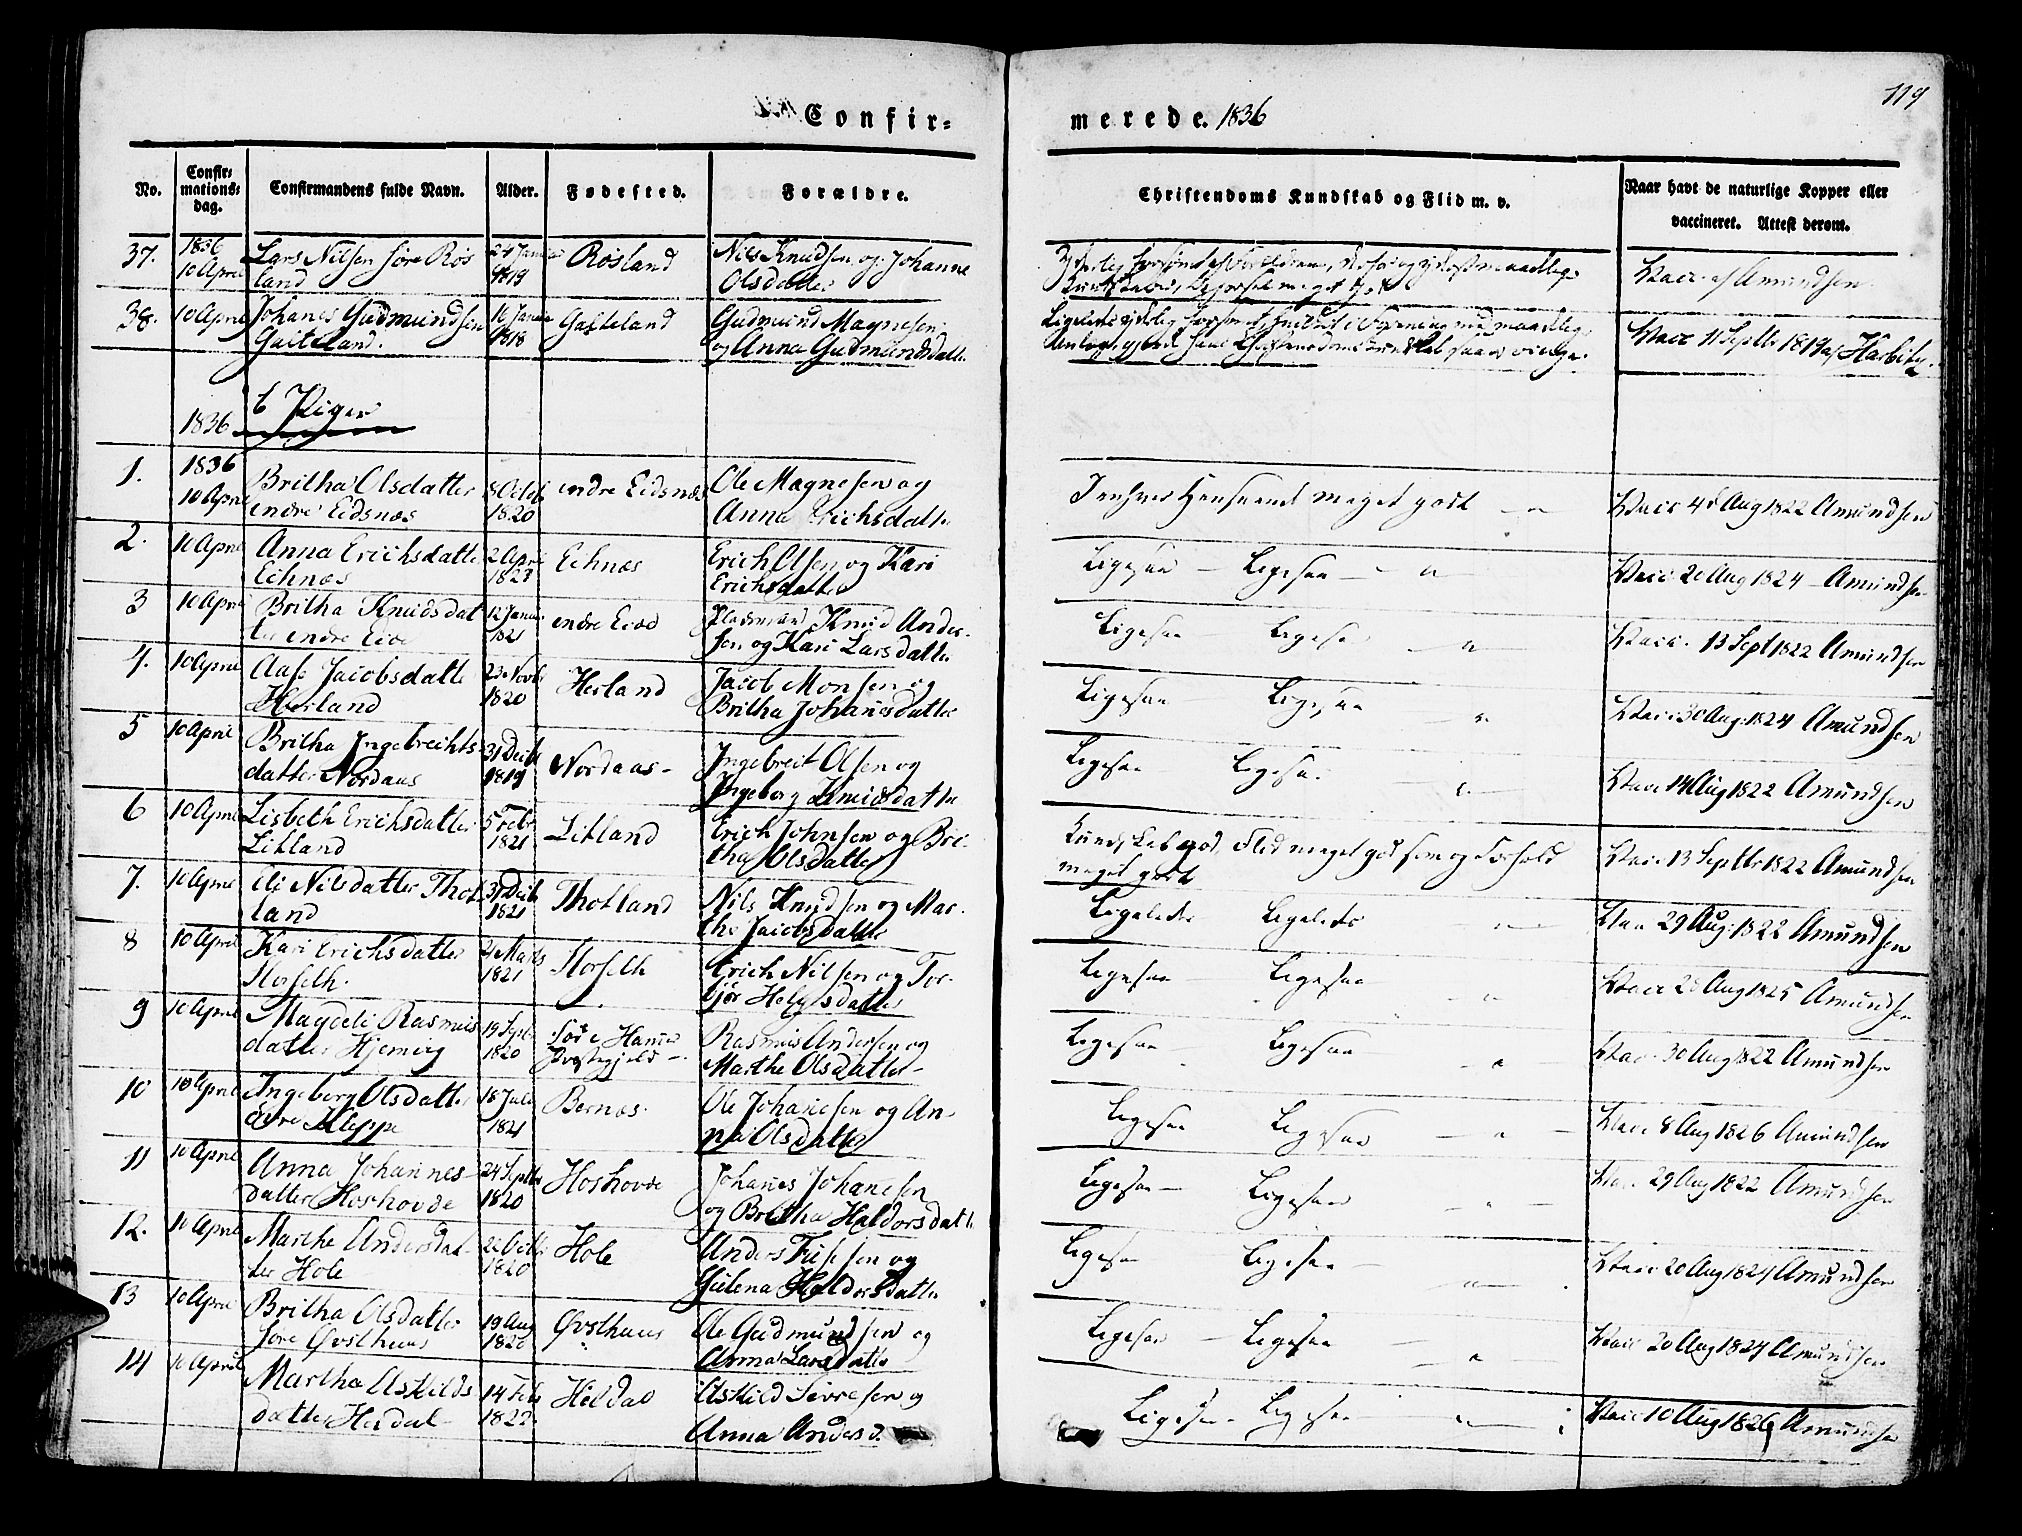 119
Confir=
merede. 1836
No.
Confir-
mations-
dag.
Confirmandens fulde Navn.
Alder.
Fødested.
Forældre.
Christendoms Kundskab og Flid m. v.
Naar havt de naturlige Kopper eller
vaccineret. Attest derom.
37.
1836
10 April
Lars Nilsen søre Røs
land
24 Januar
1819
Røsland
Nils Knudsen og Johanne
Olsdatter
Vacc af Amundsen
38.
10 April
Johanes Gudmundsen
Gaiteland.
16 Januar
1818
Gaiteland
Gudmund Magnesen
og Anna Gudmundsdatter
Vacc 11 Septbr 1819 af
1836
b Piger
1.
1836
10 April
Britha Olsdatter
endre Eidsnæs
8 Octob
1820
endre Eidsnæs
Ole Magnesen og
Anna Erichsdatter
I enhver Henseende meget godt
Vacc 4d Aug 1822 Amundsen
2.
10 April
Anna Erichsdatter
Echnæs
2 Apr
1821
Echnæs
Erich Olsen og Kari
Erichsdatter
Ligesaa — Ligesaa — "
Vacc 20 Aug 1824 Amundsen
3
10 April
Britha Knudsdat
ter endre Eide
12 Januar
1821
endre Eide
Pladsmand Knud Ander-
sen og Kari Larsdatter
Ligesaa Ligesaa "
Vacc. 13 Sept 1822 Amundsen
4.
10 April
Aase Jacobsdatter
Herland
23 Novbr
1820
Herland
Jacob Monsen og
Britha Johanesdatter
Ligesaa Ligesaa "
Vacc 30 Aug 1824 Amundsen
5
10 April
Britha Ingebrechts
datter Nordaas
31 Decbr
1819
Nordaas
Ingebret Olsen og
Ingeborg Knudsdatter
Ligesaa Ligesaa "
Vacc 14 Aug 1822 Amundsen
6
10 April
Lisbeth Erichsdatter
Litland
5 Febr
1821
Litland
Erich Johnsen og Bri-
tha Olsdatter
Kundskab god, Flid meget god som og Forhold
meget godt
Vacc 13 Septbr 1822 Amundsen
7.
10 April
Eli Nilsdatter Thot
land
31 Decbr
1821
Thotland
Nils Knudsen og Mar-
the Jacobsdatter
Ligeledes Ligeledes "
Vacc 29 Aug: 1822 Amundsen
8
10 April
Kari Erichsdatter
Horseth.
2 Marts
1821
Horseth
Erich Nilsen og Tor-
bjør Helgesdatter
Ligesaa Ligesaa "
Vacc 20 Aug 1825 Amundsen
9
10 April
Magdeli Rasmus
datter Hjemvig
19 Sept
1820
Søre
Præstegjeld —
Rasmus Andersen og
Marthe Olsdatter
Ligesaa Ligesaa "
Vacc 30 Aug 1822 Amundsen
10
10 April
Ingeborg Olsdatter
Øvre Kleppe
18 Juli
1821
Bernæs.
Ole Johanesen og An-
na Olsdatter
Ligesaa Ligesaa "
Vacc 8 Aug 1826 Amundsen
11
10 April
Anna Johannes-
datter Hoshovde
24 Septbr
1820
Hoshovde
Johanes Johanesen
og Britha Haldorsdatter
Ligesaa — Ligesaa "
Vacc 29 Aug 1822 Amundsen
12.
10 April
Marthe Andersdat-
ter Hole
22 Octbr
1820
Hole
Anders
Haldorsdatter
Ligesaa Ligesaa "
Vacc 20 Aug 1824 Amundsen
13
10 April
Britha Olsdatter
søre Øvsthuus
19 Aug
1820
Øvsthuus
Ole Gudmundsen og
Anna Larsdatter
Ligesaa Ligesaa "
Vacc 20 Aug 1824 Amundsen
14
10 April
Martha Askilds
datter Heldal
14 Feb
1822
Heldal
Askild Siversen og
Anna Andersd.
Ligesaa Ligesaa "
Vacc 10 Aug 1826 Amundsen